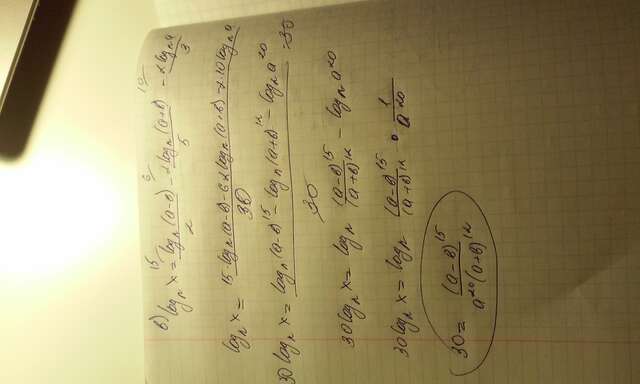 в) log_n x = ^15/ log_n(a-в)/2 - ^6/ 2log_n(a+в)/5 - ^10/ 2log_n a/3
log_n x = 15·log_n(a-в)-6·2log_n(a+в)-2·10log_n a / 30
30log_n x = log_n(a-в)^15 - log_n(a+в)^12 - log_n a^20 / 30 ·30
30log_n x = log_n (a-в)^15/(a+в)^12 - log_n a^20
30log_n x = log_n (a-в)^15/(a+в)^12 · 1/a^20
30 = (a-в)^15 / a^20(a+в)^12